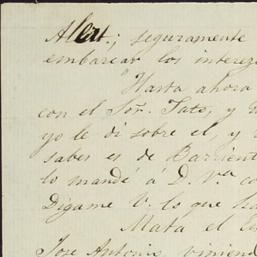 seguramente
embarcar los interez
Hasta ahora
con el Sor. Tato, y
yo le di sobre el, y
sabes es de Barrient
lo mandé á D. Va co
Digame V. lo que ha
Mata el
Jose Antonio, viniend